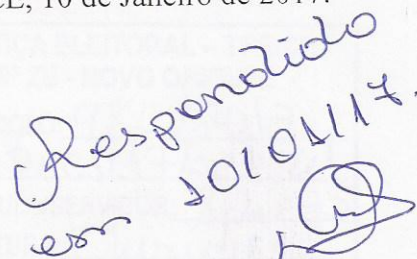 CE, 10 de Janeiro de 2017.
Respondido
em 10/01/17.